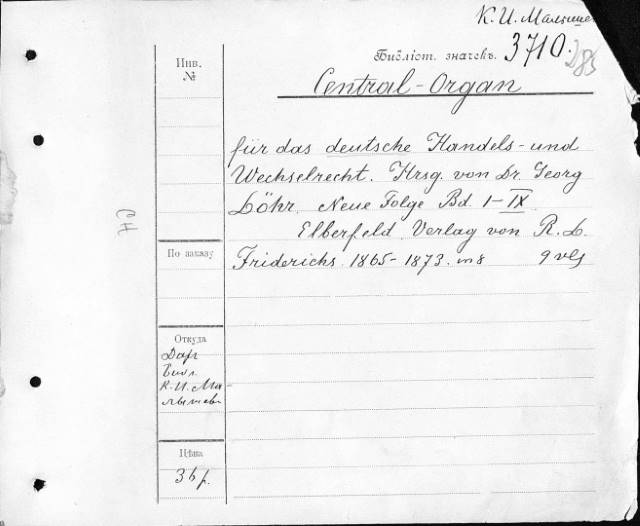 К. И. Малыше
Инв.
№
Библіот. значекъ. 3710.
285
Central-Organ
für das deutsche Handels- und
Wechselrecht. Hrsg. von Dr. Georg
Löhr. Neue Folge Bd. I–IX
Elberfeld. Verlag von R. L.
Friderichs. 1865-1873. in 8 9 vls
СН
По заказу
Откуда
Даръ
Библ.
К. И. Ма-
лышева
Цѣна
36 р.